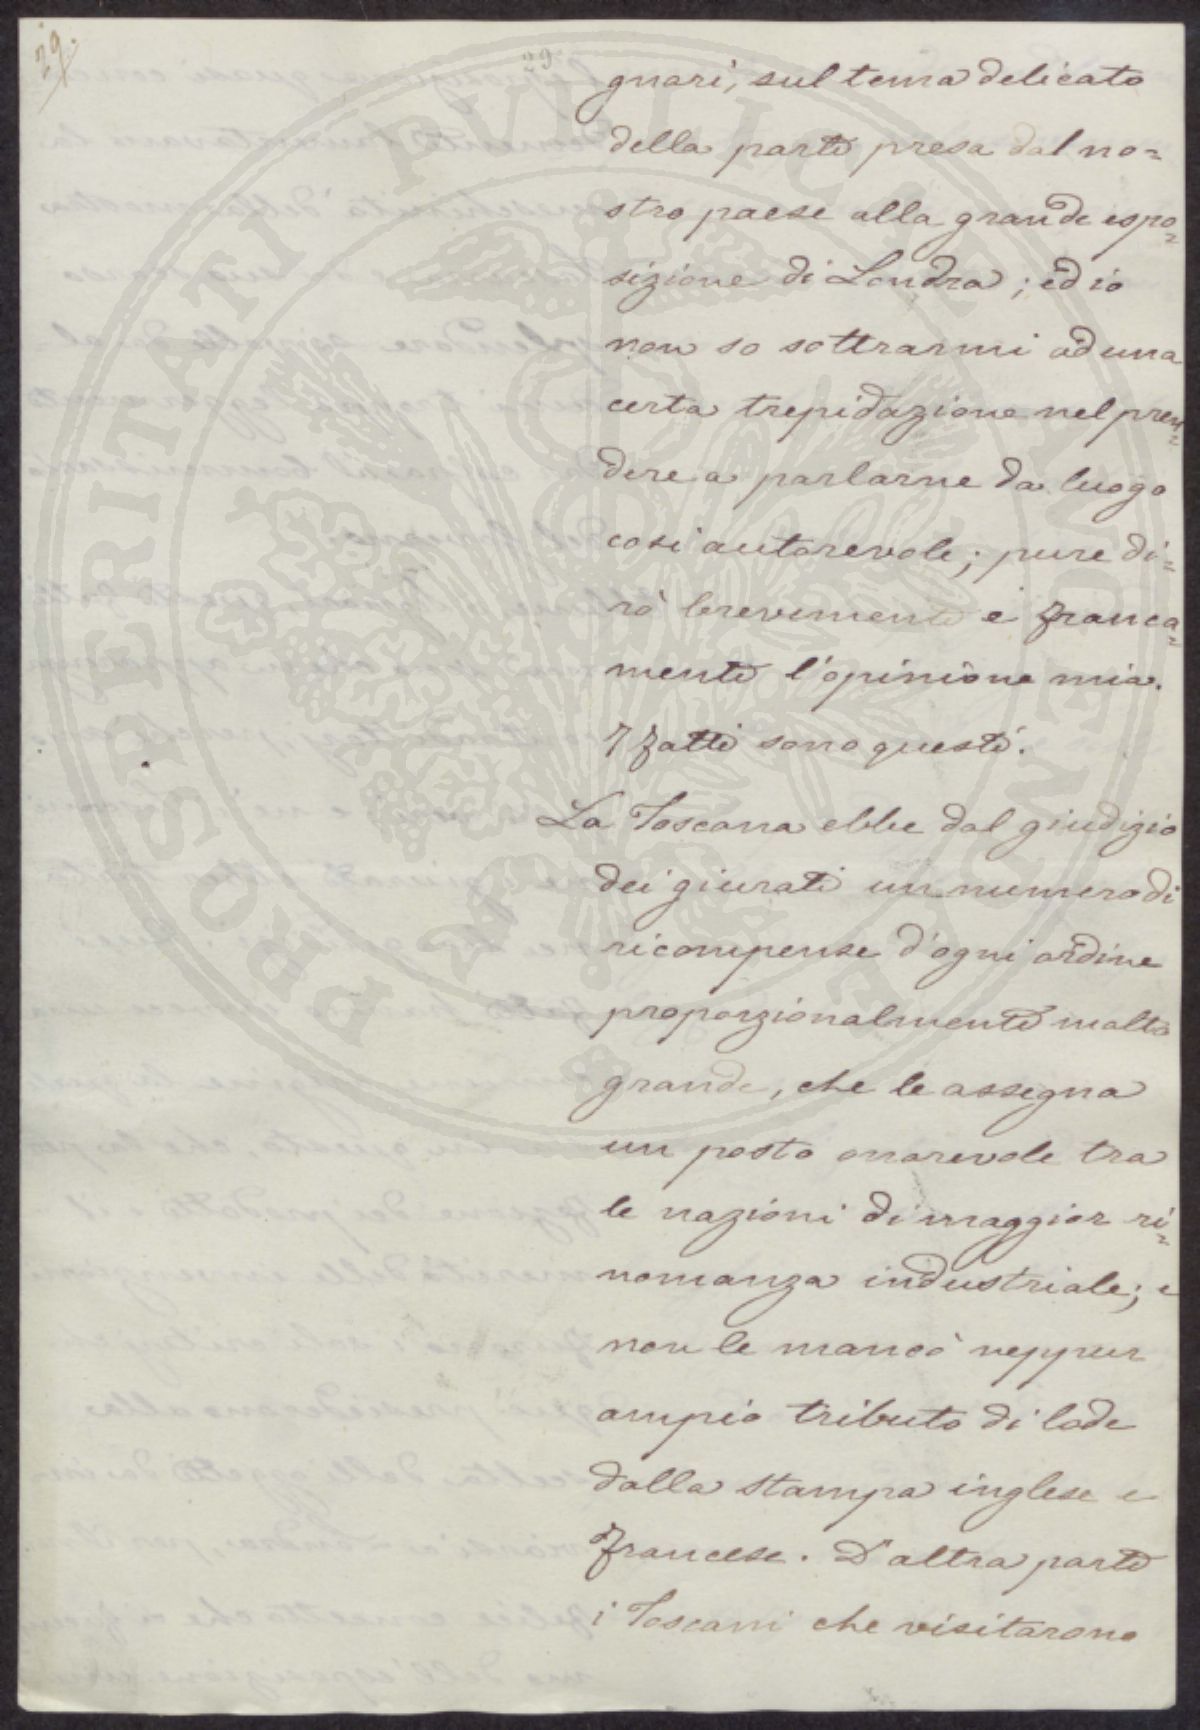 29.
29
gnari, sul tema delicato
della parte presa dal no=
stro paese alla grande espo=
sizione di Londra; ed io
non so sottrarmi ad una
certa trepidazione nel pren=
dere a parlarne da luogo
così autorevole; pure di=
rò brevemente e franca=
mente l'opinione mia.
I fatti sono questi.
La Toscana ebbe dal giudizio
dei giurati un numero di
ricompense d'ogni ordine
proporzionalmente molto
grande, che le assegna
un posto onorevole tra
le nazioni di maggior ri=
nomanza industriale; e
non le mancò neppur
ampio tributo di lode
dalla stampa inglese e
francese. D'altra parte
i Toscani che visitarono
PROSPERITATI PVBLICAE AVGENDAE